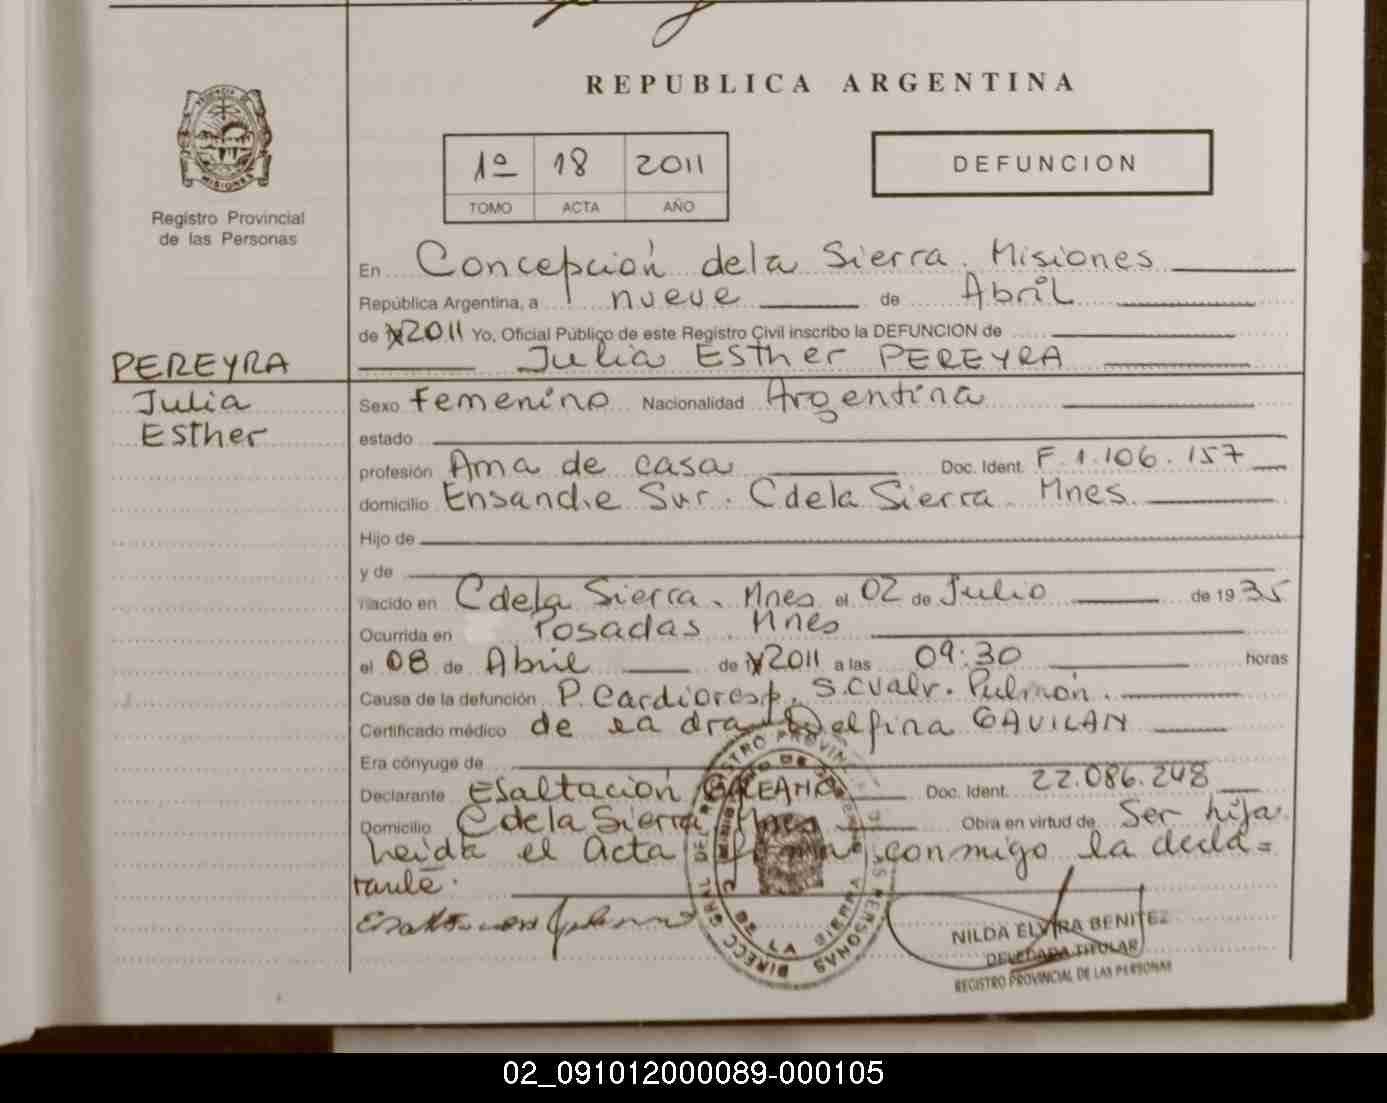 REPUBLICA ARGENTINA
PROVINCIA DE
MISIONES
Registro Provincial
de las Personas
1º 18 2011
TOMO ACTA AÑO
DEFUNCION
En Concepción de la Sierra. Misiones
República Argentina, a nueve de Abril
de 2011 Yo, Oficial Público de este Registro Civil inscribo la DEFUNCION de
Julia Esther PEREYRA
PEREYRA
Julia
Esther
Sexo Femenino Nacionalidad Argentina
estado
profesión Ama de casa Doc. Ident. F.1.106.157
domicilio Ensanche Sur. C de la Sierra. Mnes.
Hijo de
y de
nacido en C de la Sierra. Mnes el 02 de Julio de 1935
Ocurrida en Posadas. Mnes
el 08 de Abril de 2011 a las 09:30 horas
Causa de la defunción P. Cardioresp. Pulmón.
Certificado médico de la dra Delfina GAVILAN
Era cónyuge de
Declarante Esaltación GALEANO Doc. Ident. 22.086.248
Domicilio C de la Sierra Mnes Obra en virtud de Ser hija
Leída el Acta firma conmigo la decla=
rante.
NILDA ELVIRA BENITEZ
DELEGADA TITULAR
REGISTRO PROVINCIAL DE LAS PERSONAS
02_091012000089-000105